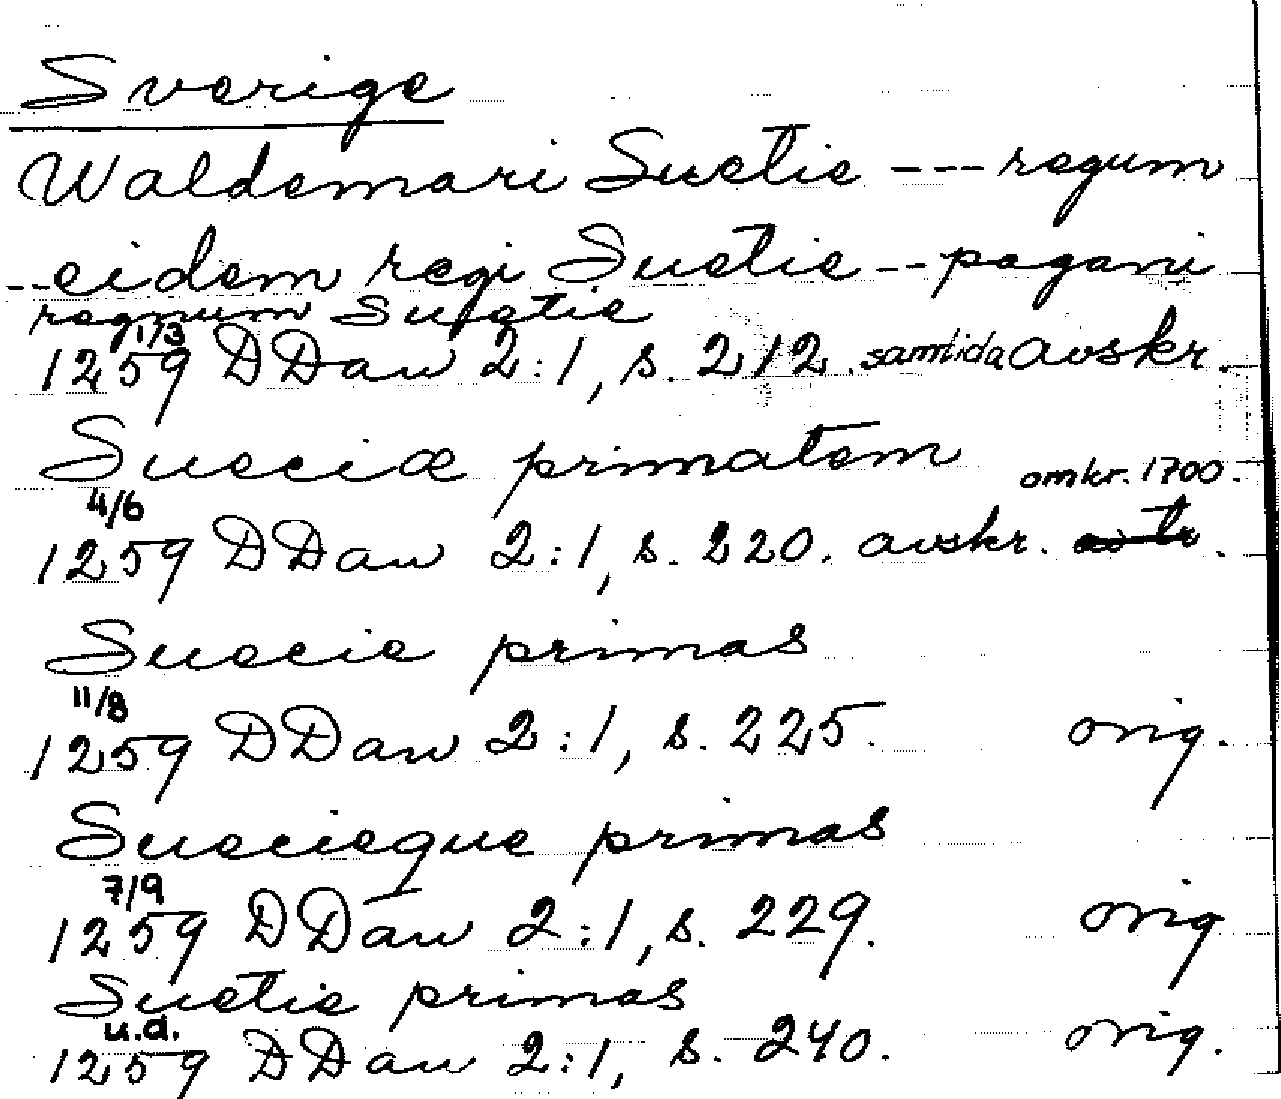 Sverige
Waldemari Suetie --- regum
-- eidem regi Suetie -- pagani
regnum Suetie
1/3
1259 DDan 2:1, s. 212. samtida avskr.
Sueciæ primatem
omkr. 1700.
4/6
1259 DDan 2:1, s. 220. avskr.
Suecie primas
11/8
1259 DDan 2:1, s. 225. orig.
Suecieque primas
7/9
1259 DDan 2:1, s. 229. orig
Suetie primas
u.d.
1259 DDan 2:1, s. 240. orig.